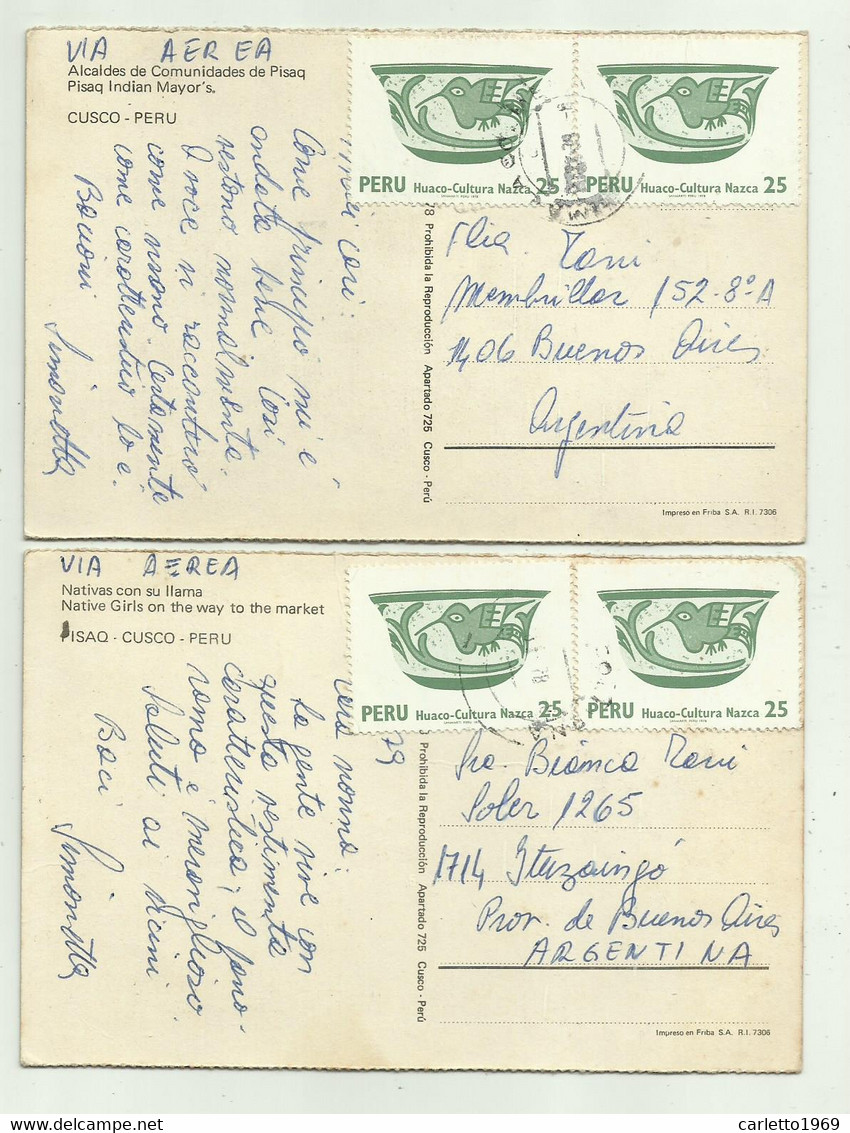 VIA AEREA
Alcaldes de Comunidades de Pisaq
Pisaq Indian Mayor's.
CUSCO - PERU
cari:
Come principio mi è
andata bene Così
restono normalmente.
A voce vi racconterò
come Certamente
come
Bacioni
Simonetta
PERU Huaco-Cultura Nazca 25
PERU Huaco-Cultura Nazca 25
78 Prohibida la Reproducción Apartado 725 Cusco - Perú
Flia Toni
Membrillar 152-8º A
1406 Buenos Aires
Argentina
Impreso en Friba S.A. R.I. 7306
VIA AEREA
Nativas con su llama
Native Girls on the way to the market
PISAQ - CUSCO - PERU
79
Cara nonna:
La gente vive con
questa vestimenta
caratteristica, il pano-
ramo è meraviglioso
Saluti ai vicini
Baci
Simonetta
PERU Huaco-Cultura Nazca 25
PERU Huaco-Cultura Nazca 25
Prohibida la Reproducción Apartado 725 Cusco - Perú
Sra. Bianca Toni
Soler 1265
1714 Ituzaingó
Prov. de Buenos Aires
ARGENTINA
Impreso en Friba S.A. R.I. 7306
carletto1969